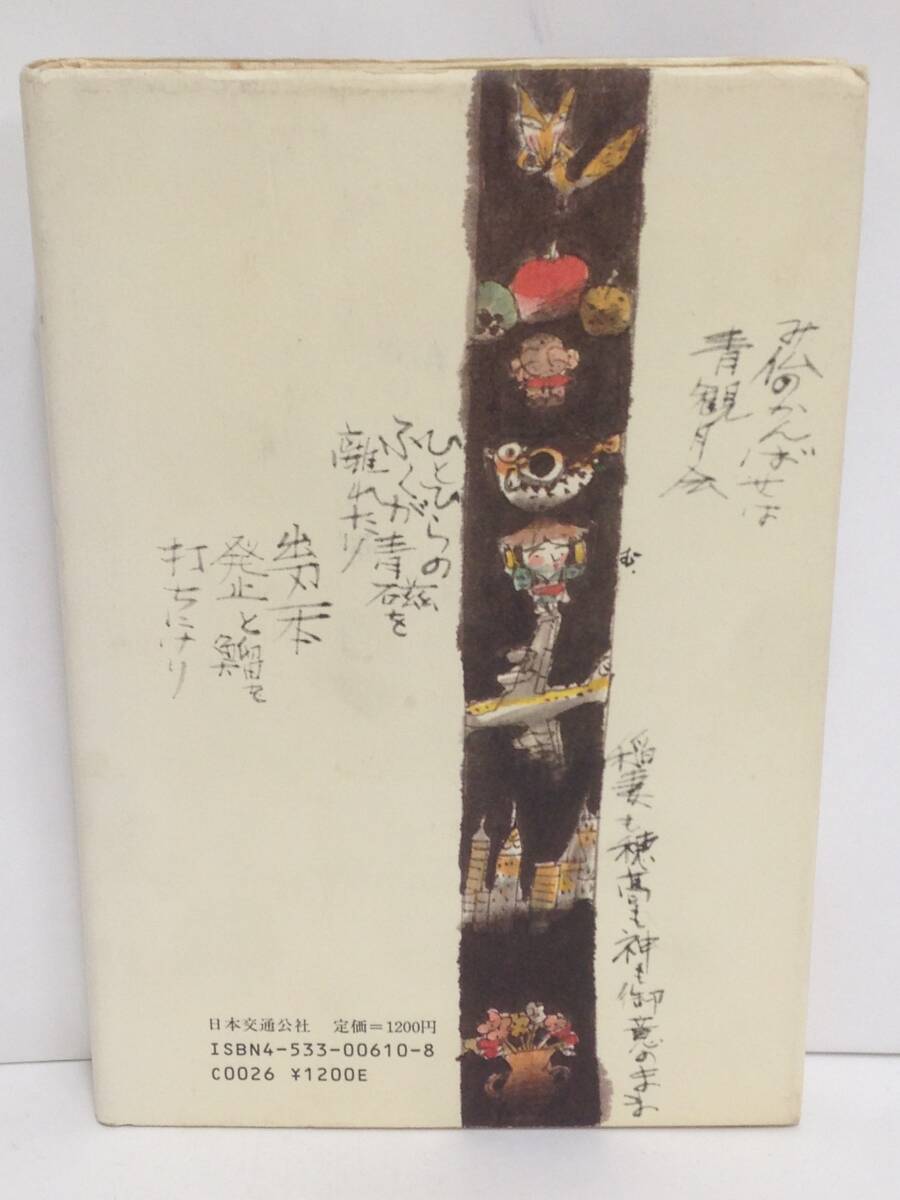 み仏のかんばせは
青観月会
ひとひらの
ふくが青磁を
離れたり
出刃一本
発止と鰡を
打ちにけり
む.
稲妻も穂高も神も御意のまゝ
日本交通公社 定価=1200円
ISBN4-533-00610-8
C0026 ¥1200E